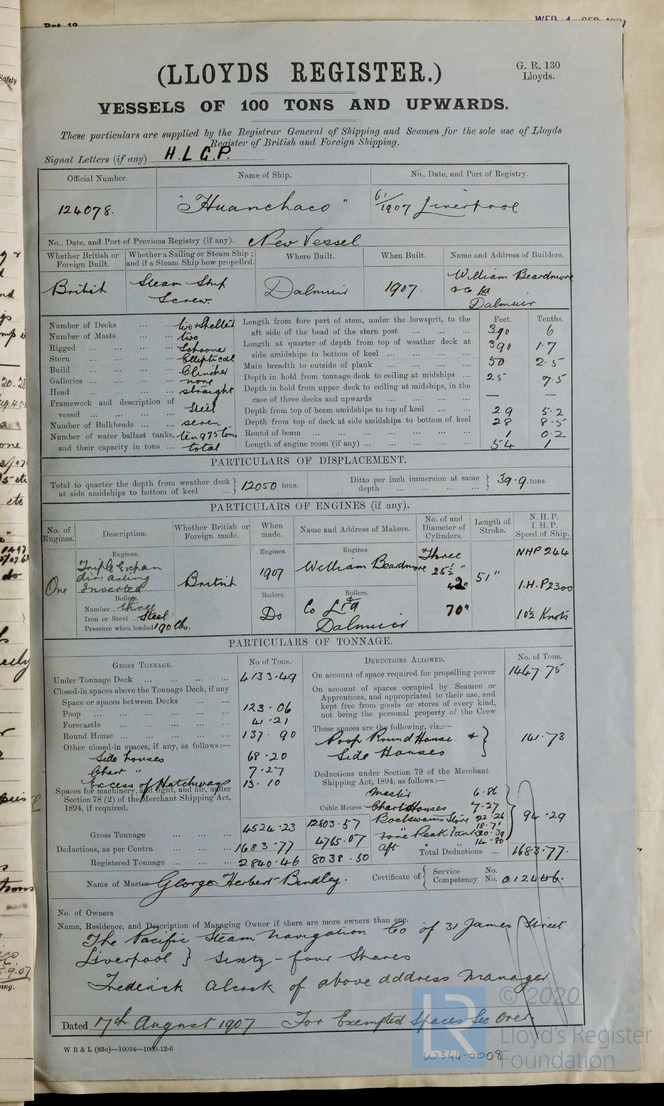 (LLOYDS REGISTER.)
G. R. 130
Lloyds.
VESSELS OF 100 TONS AND UPWARDS.
These particulars are supplied by the Registrar General of Shipping and Seamen for the sole use of Lloyds
Register of British and Foreign Shipping.
Signal Letters (if any) H.L.G.P.
Official Number. Name of Ship. No., Date, and Port of Registry.
124078. "Huanchaco" 61/1907 Liverpool
No., Date, and Port of Previous Registry (if any). New Vessel
Whether British or Foreign Built. Whether a Sailing or Steam Ship; and if a Steam Ship how propelled. Where Built. When Built. Name and Address of Builders.
British Steam Ship Screw. Dalmuir 1907. William Beardmore & Co Ld Dalmuir
Number of Decks two & Shelter
Number of Masts two
Rigged Schooner
Stern Elliptical
Build Clincher
Galleries none
Head straight
Framework and description of vessel Steel
Number of Bulkheads seven
Number of water ballast tanks, and their capacity in tons ten 975 tons total
Feet. Tenths.
Length from fore part of stem, under the bowsprit, to the aft side of the head of the stern post 390 6
Length at quarter of depth from top of weather deck at side amidships to bottom of keel 390 1.7
Main breadth to outside of plank 50 2.5
Depth in hold from tonnage deck to ceiling at midships 25 7.5
Depth in hold from upper deck to ceiling at midships, in the case of three decks and upwards — —
Depth from top of beam amidships to top of keel 29 5.2
Depth from top of deck at side amidships to bottom of keel 28 8.5
Round of beam 1 0.2
Length of engine room (if any) 54 1
PARTICULARS OF DISPLACEMENT.
Total to quarter the depth from weather deck at side amidships to bottom of keel 12050 tons. Ditto per inch immersion at same depth 39.9 tons
PARTICULARS OF ENGINES (if any).
No. of Engines. Description. Whether British or Foreign made. When made. Name and Address of Makers. No. of and Diameter of Cylinders. Length of Stroke. N.H.P. I.H.P. Speed of Ship.
Engines. Engines. Engines
One Triple Expan dir: acting Inverted British 1907 William Beardmore Three 25½" 42" 51" NHP 244
I.H.P 2300
Boilers. Boilers. Boilers.
Number three
Iron or Steel Steel
Pressure when loaded 190 lb.
Do Co Ltd Dalmuir 70" 10½ Knots
PARTICULARS OF TONNAGE.
GROSS TONNAGE. No of Tons. DEDUCTIONS ALLOWED. No. of Tons.
Under Tonnage Deck 4133.49
Closed-in spaces above the Tonnage Deck, if any
Space or spaces between Decks
Poop 123.06
Forecastle 41.21
Round House 137.90
Other closed-in spaces, if any, as follows:—
Side houses 68.20
Chart " 7.27
Excess of Hatchways 13.10
Spaces for machinery, and light, and air, under Section 78 (2) of the Merchant Shipping Act, 1894, if required.
Cubic Metres
Gross Tonnage 4524.23 12803.57
Deductions, as per Contra 1683.77 4765.07
Registered Tonnage 2840.46 8038.50
On account of space required for propelling power 1467.75
On account of spaces occupied by Seamen or Apprentices, and appropriated to their use, and kept free from goods or stores of every kind, not being the personal property of the Crew
These spaces are the following, viz.:—
Poop Round House & Side Houses 141.73
Deductions under Section 79 of the Merchant Shipping Act, 1894, as follows:—
Master's 6.86
Chart Houses 7.27
Boatswains Store 22.26
Fore Peak Tank 20.39
Aft 14.80
94.29
Total Deductions 1683.77.
Name of Master George Herbert Bindley. Certificate of Service No. Competency No. 012446.
No. of Owners
Name, Residence, and Description of Managing Owner if there are more owners than one.
The Pacific Steam Navigation Co of 31 James Street
Liverpool } Sixty-four Shares
Frederick Alcock of above address Manager
Dated 7th August 1907 For Exempted Spaces See Over.
W B & L (83o)—16034—1000-12-6
W344-0008
© 2020
LR
Lloyd's Register
Foundation